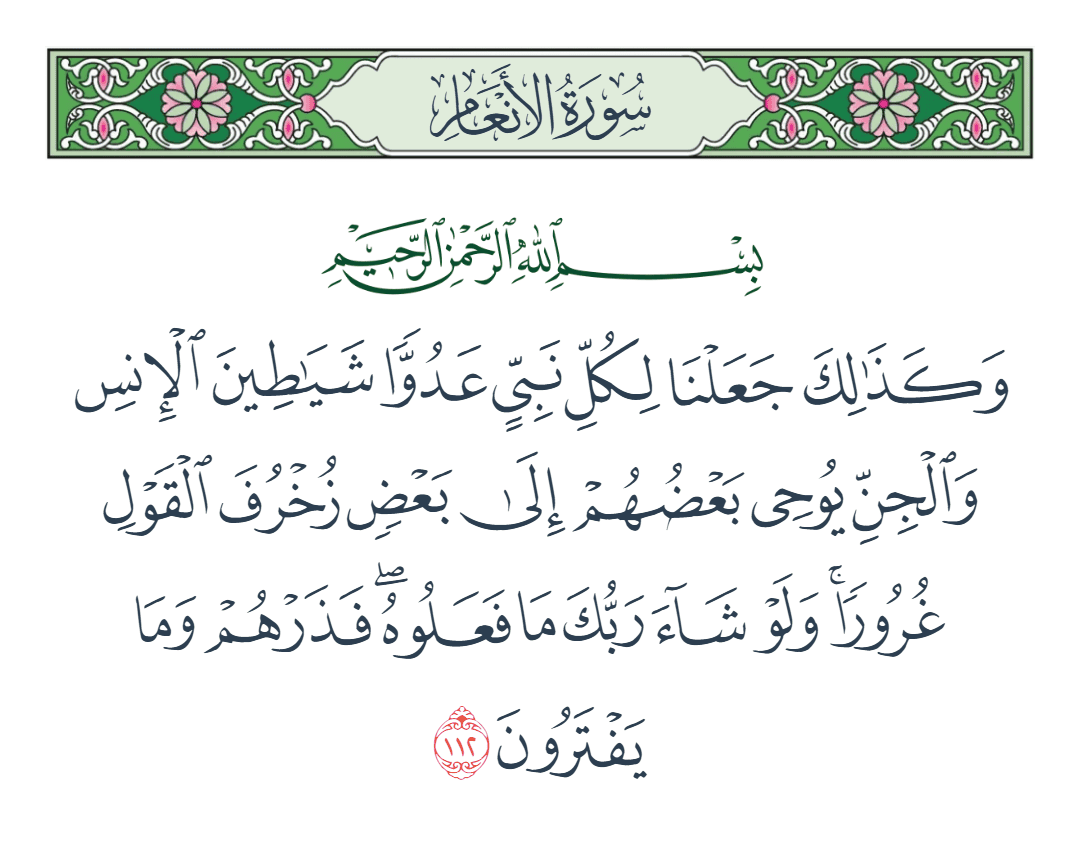 سُورَةُ الأَنْعَامِ
بِسْمِ ٱللَّهِ ٱلرَّحْمَٰنِ ٱلرَّحِيمِ
وَكَذَٰلِكَ جَعَلْنَا لِكُلِّ نَبِيٍّ عَدُوًّا شَيَٰطِينَ ٱلْإِنسِ
وَٱلْجِنِّ يُوحِى بَعْضُهُمْ إِلَىٰ بَعْضٍ زُخْرُفَ ٱلْقَوْلِ
غُرُورًا ۚ وَلَوْ شَآءَ رَبُّكَ مَا فَعَلُوهُ ۖ فَذَرْهُمْ وَمَا
يَفْتَرُونَ ١١٢